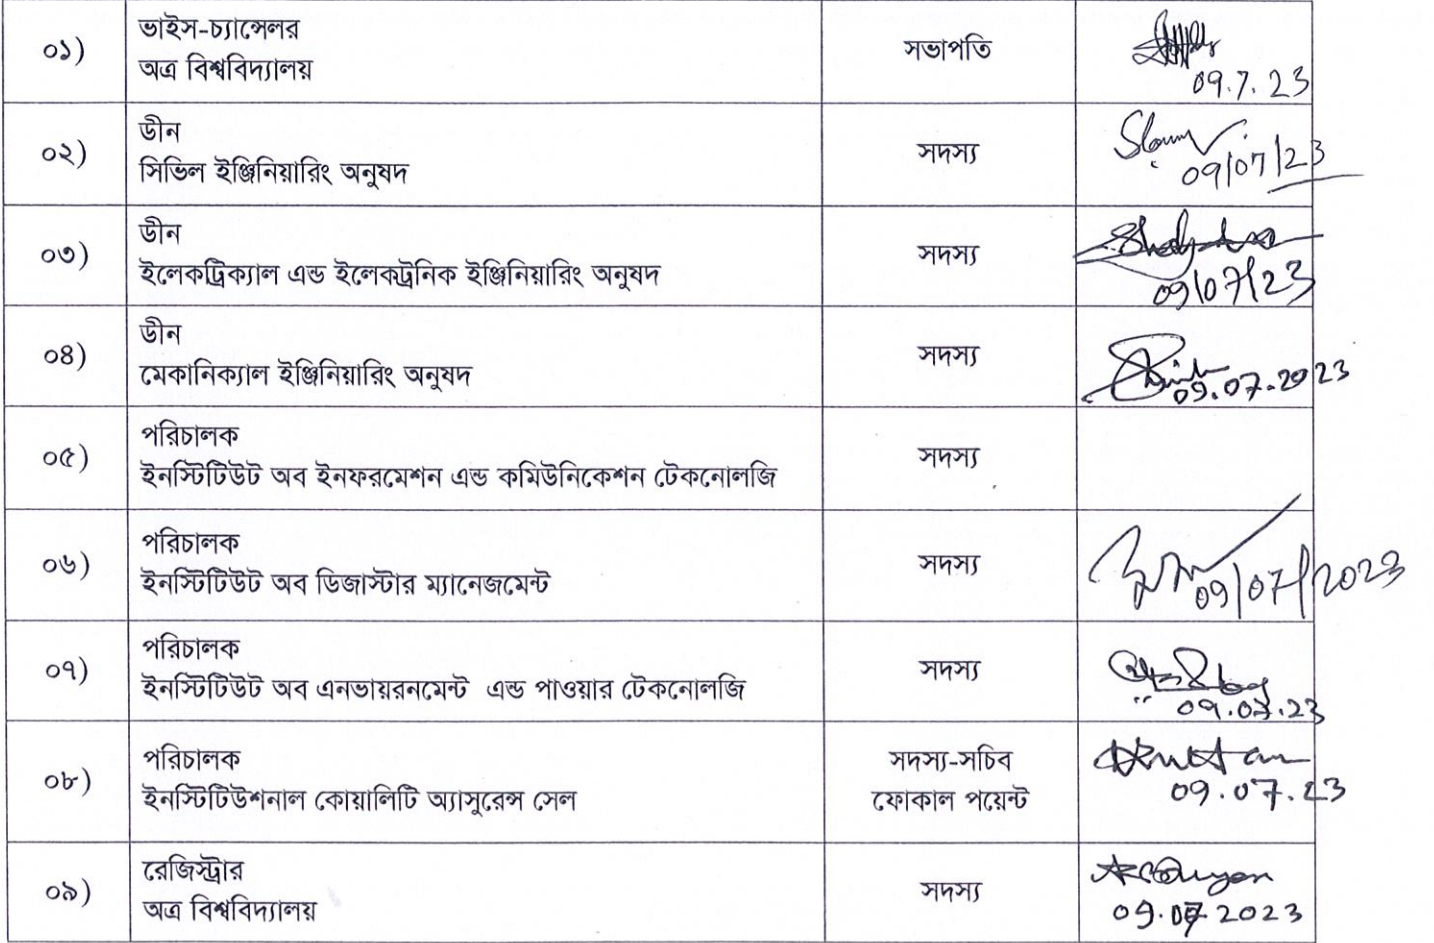 ০১)
ভাইস-চ্যান্সেলর
অত্র বিশ্ববিদ্যালয়
সভাপতি
09.7.23
০২)
ডীন
সিভিল ইঞ্জিনিয়ারিং অনুষদ
সদস্য
09/07/23
০৩)
ডীন
ইলেকট্রিক্যাল এন্ড ইলেকট্রনিক ইঞ্জিনিয়ারিং অনুষদ
সদস্য
09/07/23
০৪)
ডীন
মেকানিক্যাল ইঞ্জিনিয়ারিং অনুষদ
সদস্য
09.07.2023
০৫)
পরিচালক
ইনস্টিটিউট অব ইনফরমেশন এন্ড কমিউনিকেশন টেকনোলজি
সদস্য
০৬)
পরিচালক
ইনস্টিটিউট অব ডিজাস্টার ম্যানেজমেন্ট
সদস্য
09/07/2023
০৭)
পরিচালক
ইনস্টিটিউট অব এনভায়রনমেন্ট এন্ড পাওয়ার টেকনোলজি
সদস্য
09.07.23
০৮)
পরিচালক
ইনস্টিটিউশনাল কোয়ালিটি অ্যাসুরেন্স সেল
সদস্য-সচিব
ফোকাল পয়েন্ট
09.07.23
০৯)
রেজিস্ট্রার
অত্র বিশ্ববিদ্যালয়
সদস্য
09.07 2023